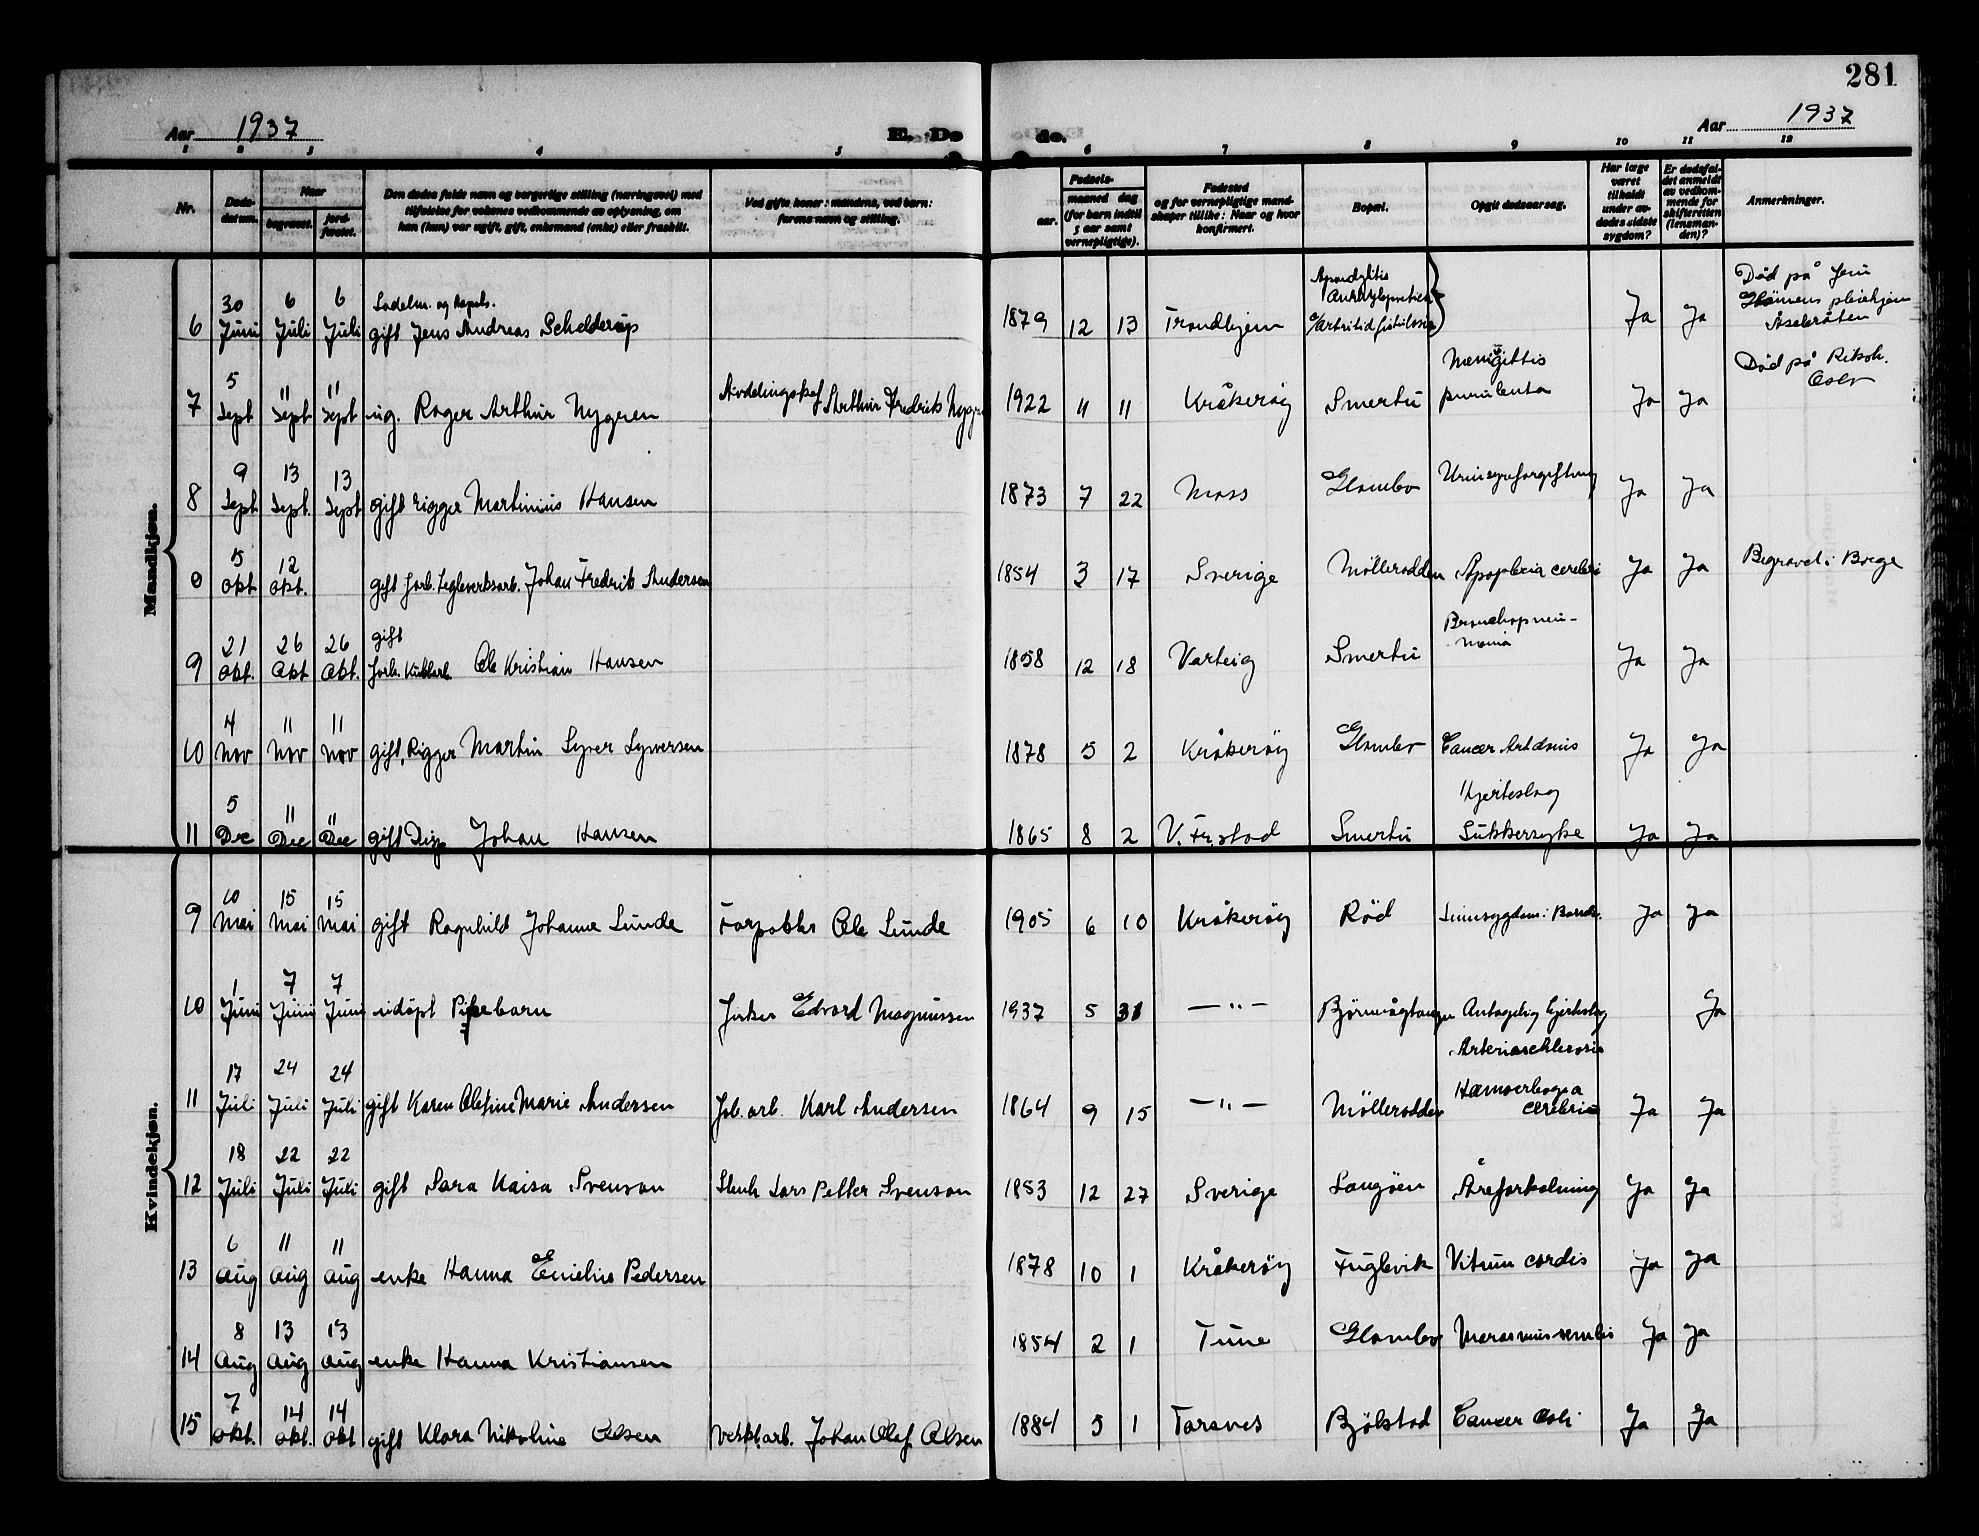 281
Aar 1937
E. Dø
de.
Aar 1937
1 2 3 4 5 6 7 8 9 10 11 12
Nr.
Døds-
datum.
Naar
begravet.
jord-
fæstet.
Den dødes fulde navn og borgerlige stilling (næringsvei) med
tilføielse for voksnes vedkommende av oplysning, om
han (hun) var ugift, gift, enkemand (enke) eller fraskilt.
Ved gifte koner: mandens, ved børn:
farens navn og stilling.
Fødsels-
aar.
maaned dag
(for barn indtil
5 aar samt
vernepligtige).
Fødested
og for vernepligtige mand-
skaper tillike: Naar og hvor
konfirmert.
Bopæl.
Opgit dødsaarsag.
Har læge
været
tilkaldt
under av-
dødes sidste
sygdom?
Er dødsfal-
det anmeldt
av vedkom-
mende for
skifteretten
(lensman-
den)?
Anmerkninger.
Mandkjøn.
6 30 Juni 6 Juli 6 Juli gift Jens Andreas Schelderup 1879 12 13 Trondhjem Ja Ja Død på
7 5 Sept 11 Sept 11 Sept ug. Roger Arthur Nygren Arthur Fredrik 1922 11 11 Kråkerøy Smertu purulenta Ja Ja Død på Riksh. Oslo
8 9 Sept 13 Sept. 13 Sept gift rigger Martinius Hansen 1873 7 22 Moss Glombo Urinsyreforgiftning Ja Ja
0 5 Okt 12 Okt. gift forh. Teglverksarb. Johan Fredrik Andersen 1854 3 17 Sverige Møllerodden Apoplexia cerebri Ja Ja Begravet i Borge
9 21 Okt. 26 Okt 26 Okt. gift forh. Ole Kristian Hansen 1858 12 18 Varteig Smertu Bronchopneu-
monia Ja Ja
10 4 Nov 11 Nov 11 Nov gift, Rigger Martin Syver Syversen 1878 5 2 Kråkerøy Glombo Cancer Ja Ja
11 5 Dec 11 Dec 11 Dec gift Johan Hansen 1865 8 2 V. Fr.stad Smertu Hjerteslag
Sukkersyke Ja Ja
Kvindekjøn.
9 10 Mai 15 Mai 15 Mai gift Ragnhild Johanne Lunde Ole Lunde 1905 6 10 Kråkerøy Rød Ja Ja
10 1 Juni 7 Juni 7 Juni udøpt Pikebarn Fisker Edvard Magnussen 1937 5 31 — " — Antagelig hjerteslag Ja
11 17 Juli 24 Juli 24 Juli gift Karen Olefine Marie Andersen arb. Karl Andersen 1864 9 15 — " — Møllerodden Arteriosclerosis
cerebri Ja Ja
12 18 Juli 22 Juli 22 Juli gift Sara Kaisa Svenson Lars Petter Svenson 1853 12 27 Sverige Langøen Åreforkalkning Ja Ja
13 6 Aug 11 Aug 11 Aug enke Hanna Emelie Pedersen 1878 10 1 Kråkerøy Fuglevik Vitium cordis Ja Ja
14 8 Aug 13 Aug 13 Aug enke Hanna Kristiansen 1854 2 1 Tune Glombo Marasmus senilis Ja Ja
15 7 Okt. 14 Okt. 14 Okt gift Klara Nikoline Olsen Verkst.arb. Johan Olaf Olsen 1884 5 1 Torsnes Bjølstad Cancer Coli Ja Ja